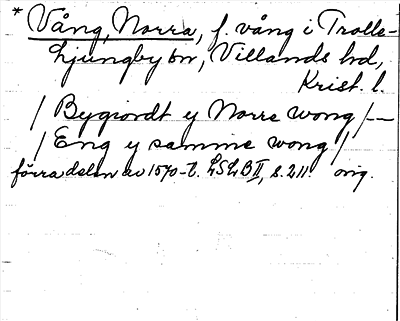 * Vång, Norra, f. vång i Trolle-
Ljungby sn, Villands hd,
Krist. l.
/ Bygiordt y Norre wong /--
/ Eng y samme wong /
förra delen av 1570-t. LSLB II, s. 211. orig.